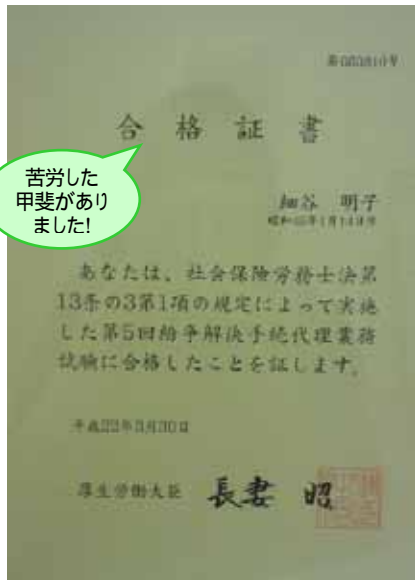 合格証書
苦労した
甲斐があり
ました!
細谷 明子
あなたは、社会保険労務士法第
13条の3第1項の規定によって実施
した第5回紛争解決手続代理業務
試験に合格したことを証します。
平成22年3月30日
厚生労働大臣 長妻 昭